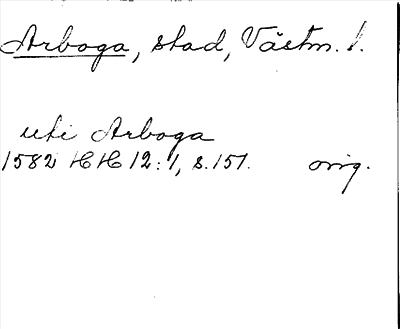 Arboga, stad, Västm. l.
uti Arboga
1582 HH 12:1, s. 151. orig.